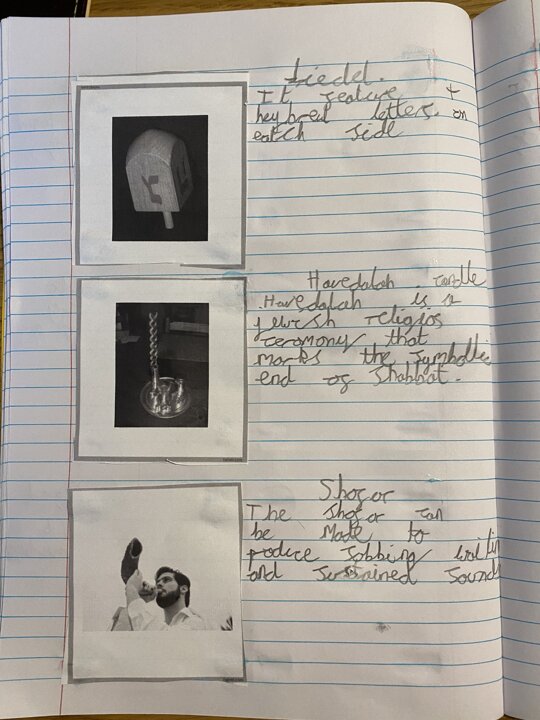 It feature 4
heybrew letters. on
eatch side
Havedalah candle
Havedalah is a
jewish religios
ceromony that
marks the symbollic
end of Shabbat.
Shofor
The Shofor can
be made to
produce sobbing wailin
and sustained sounds